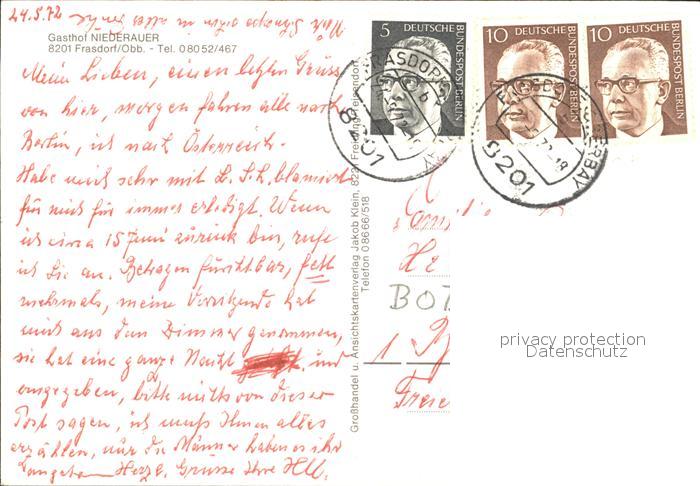 24.5.72
Gasthof NIEDERAUER
8201 Frasdorf/Obb. - Tel. 08052/467
Meine Lieben, einen letzten Gruss
von hier, morgen fahren alle nach
Berlin, ich nach Österreich.
Habe mich sehr mit L. S.h. blamiert
für mich für immer erledigt. Wenn
ich circa 15 Juni zurück bin, rufe
ich Sie an. Betragen furchtbar, fett
mehrmals, meine Vorsitzende hat
mich aus dem Zimmer genommen,
sie hat eine ganze Nacht und
eingegeben, bitte nichts von dieser
Post sagen, ich muss Ihnen alles
erzählen, nur die Männer haben es ihr
Herzl. Grüsse Ihre
Großhandel u. Ansichtskartenverlag Jakob Klein, 8228 Freilassing
Telefon 08666/518
5 DEUTSCHE BUNDESPOST BERLIN
10 DEUTSCHE BUNDESPOST BERLIN
10 DEUTSCHE BUNDESPOST BERLIN
FRASDORF
8201
8201
Familie
He
BOT
1 B
privacy protection
Datenschutz